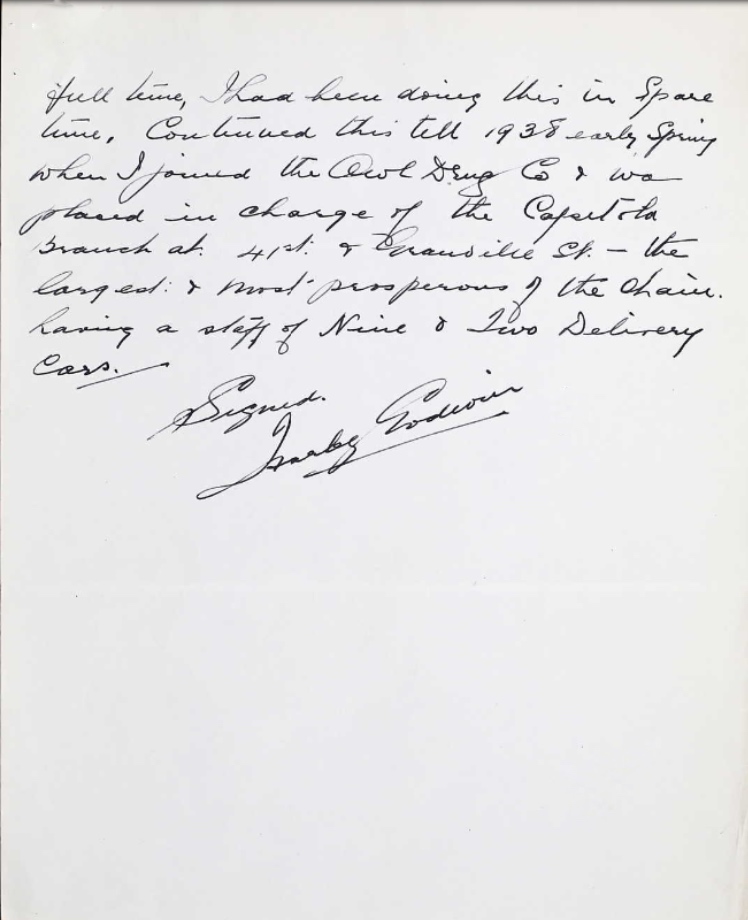 full time, I had been doing this in Spare
time. Continued this till 1938 early Spring
when I joined the Owl Drug Co & was
placed in charge of the Capitola
Branch at 41st & Granville St. – the
largest & most prosperous of the Chain.
having a staff of Nine & Two Delivery
Cars.
Signed.
Godwin